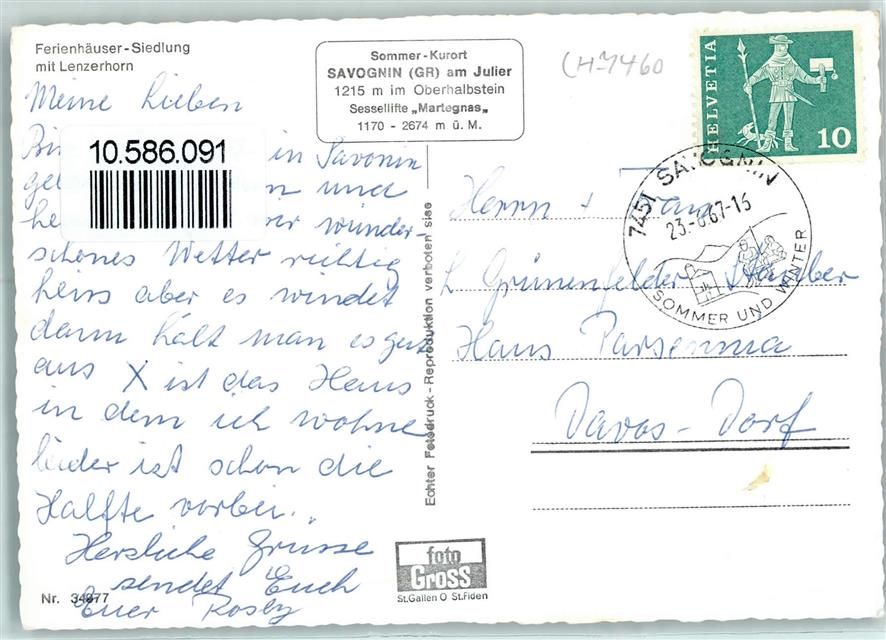 Ferienhäuser-Siedlung
mit Lenzerhorn
Sommer-Kurort
SAVOGNIN (GR) am Julier
1215 m im Oberhalbstein
Sessellifte „Martegnas„
1170 - 2674 m ü. M.
CH-7460
HELVETIA
10
7451 SAVOGNIN
23.-8.67-15
SOMMER UND WINTER
Meine Lieben
10.586.091
in Savonin
und
wunder-
schönes Wetter richtig
heiss aber es windet
dann hält man es gut
aus X ist das Haus
in dem ich wohne
leider ist schon die
Hälfte vorbei.
Herzliche Grüsse
sendet Euch
Euer Rosly
Echter Fotodruck - Reproduktion verboten
Herrn + Frau
L Grünenfelder
Haus Parsenna
Davos-Dorf
Nr. 34977
foto
GROSS
St.Gallen O St.Fiden